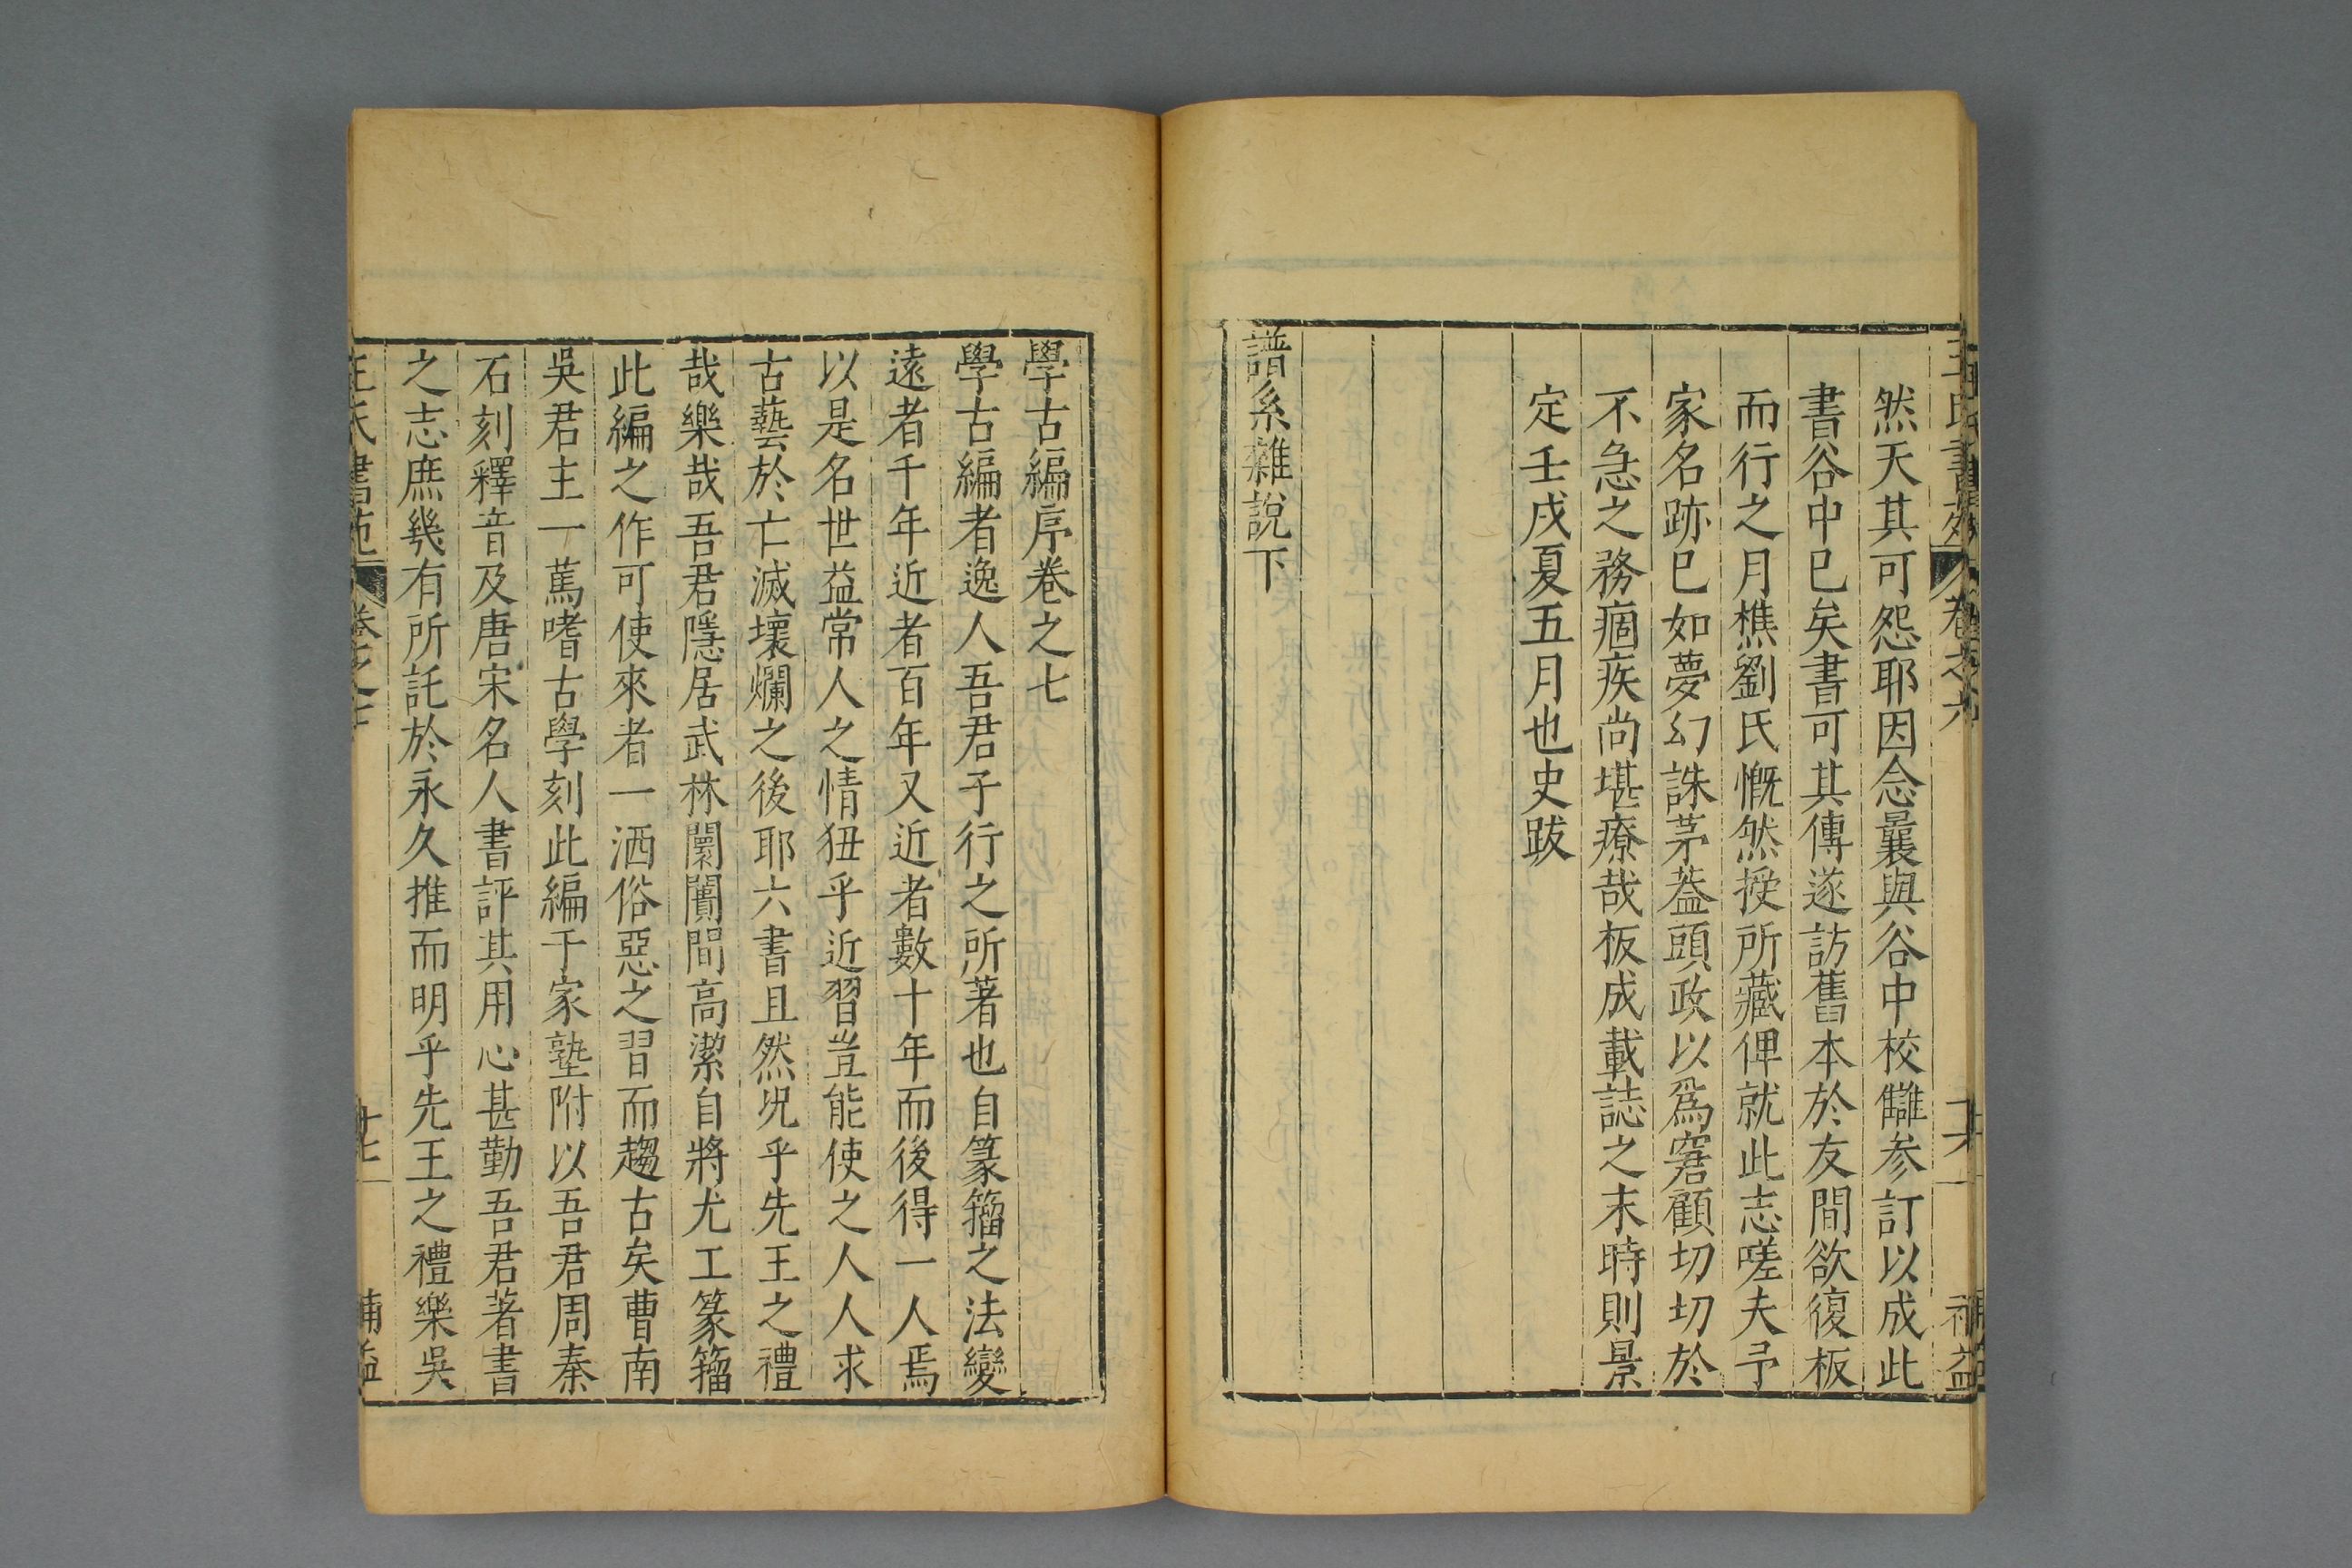 王氏書苑 卷之六 補益
然天其可怨耶因念曩與谷中校讎参訂以成此
書谷中巳矣書可其傳遂訪舊本於友間欲復板
而行之月樵劉氏慨然授所藏俾就此志嗟夫予
家名跡巳如夢幻誅茅葢頭政以爲窘顧切切於
不急之務痼疾尚堪療哉板成載誌之末時則景
定壬戌夏五月也史跋
譜系雜說下
學古編序卷之七
學古編者逸人吾君子行之所著也自篆籀之法變
遠者千年近者百年又近者數十年而後得一人焉
以是名世益常人之情狃乎近習豈能使之人人求
古藝於亡滅壞爛之後耶六書且然况乎先王之禮
哉樂哉吾君隱居武林闤闠間高潔自將尤工篆籀
此編之作可使來者一洒俗惡之習而趨古矣曹南
吳君主一蔦嗜古學刻此編于家塾附以吾君周秦
石刻釋音及唐宋名人書評其用心甚勤吾君著書
之志庶幾有所託於永久推而明乎先王之禮樂吳
王氏書苑 卷之七 補益